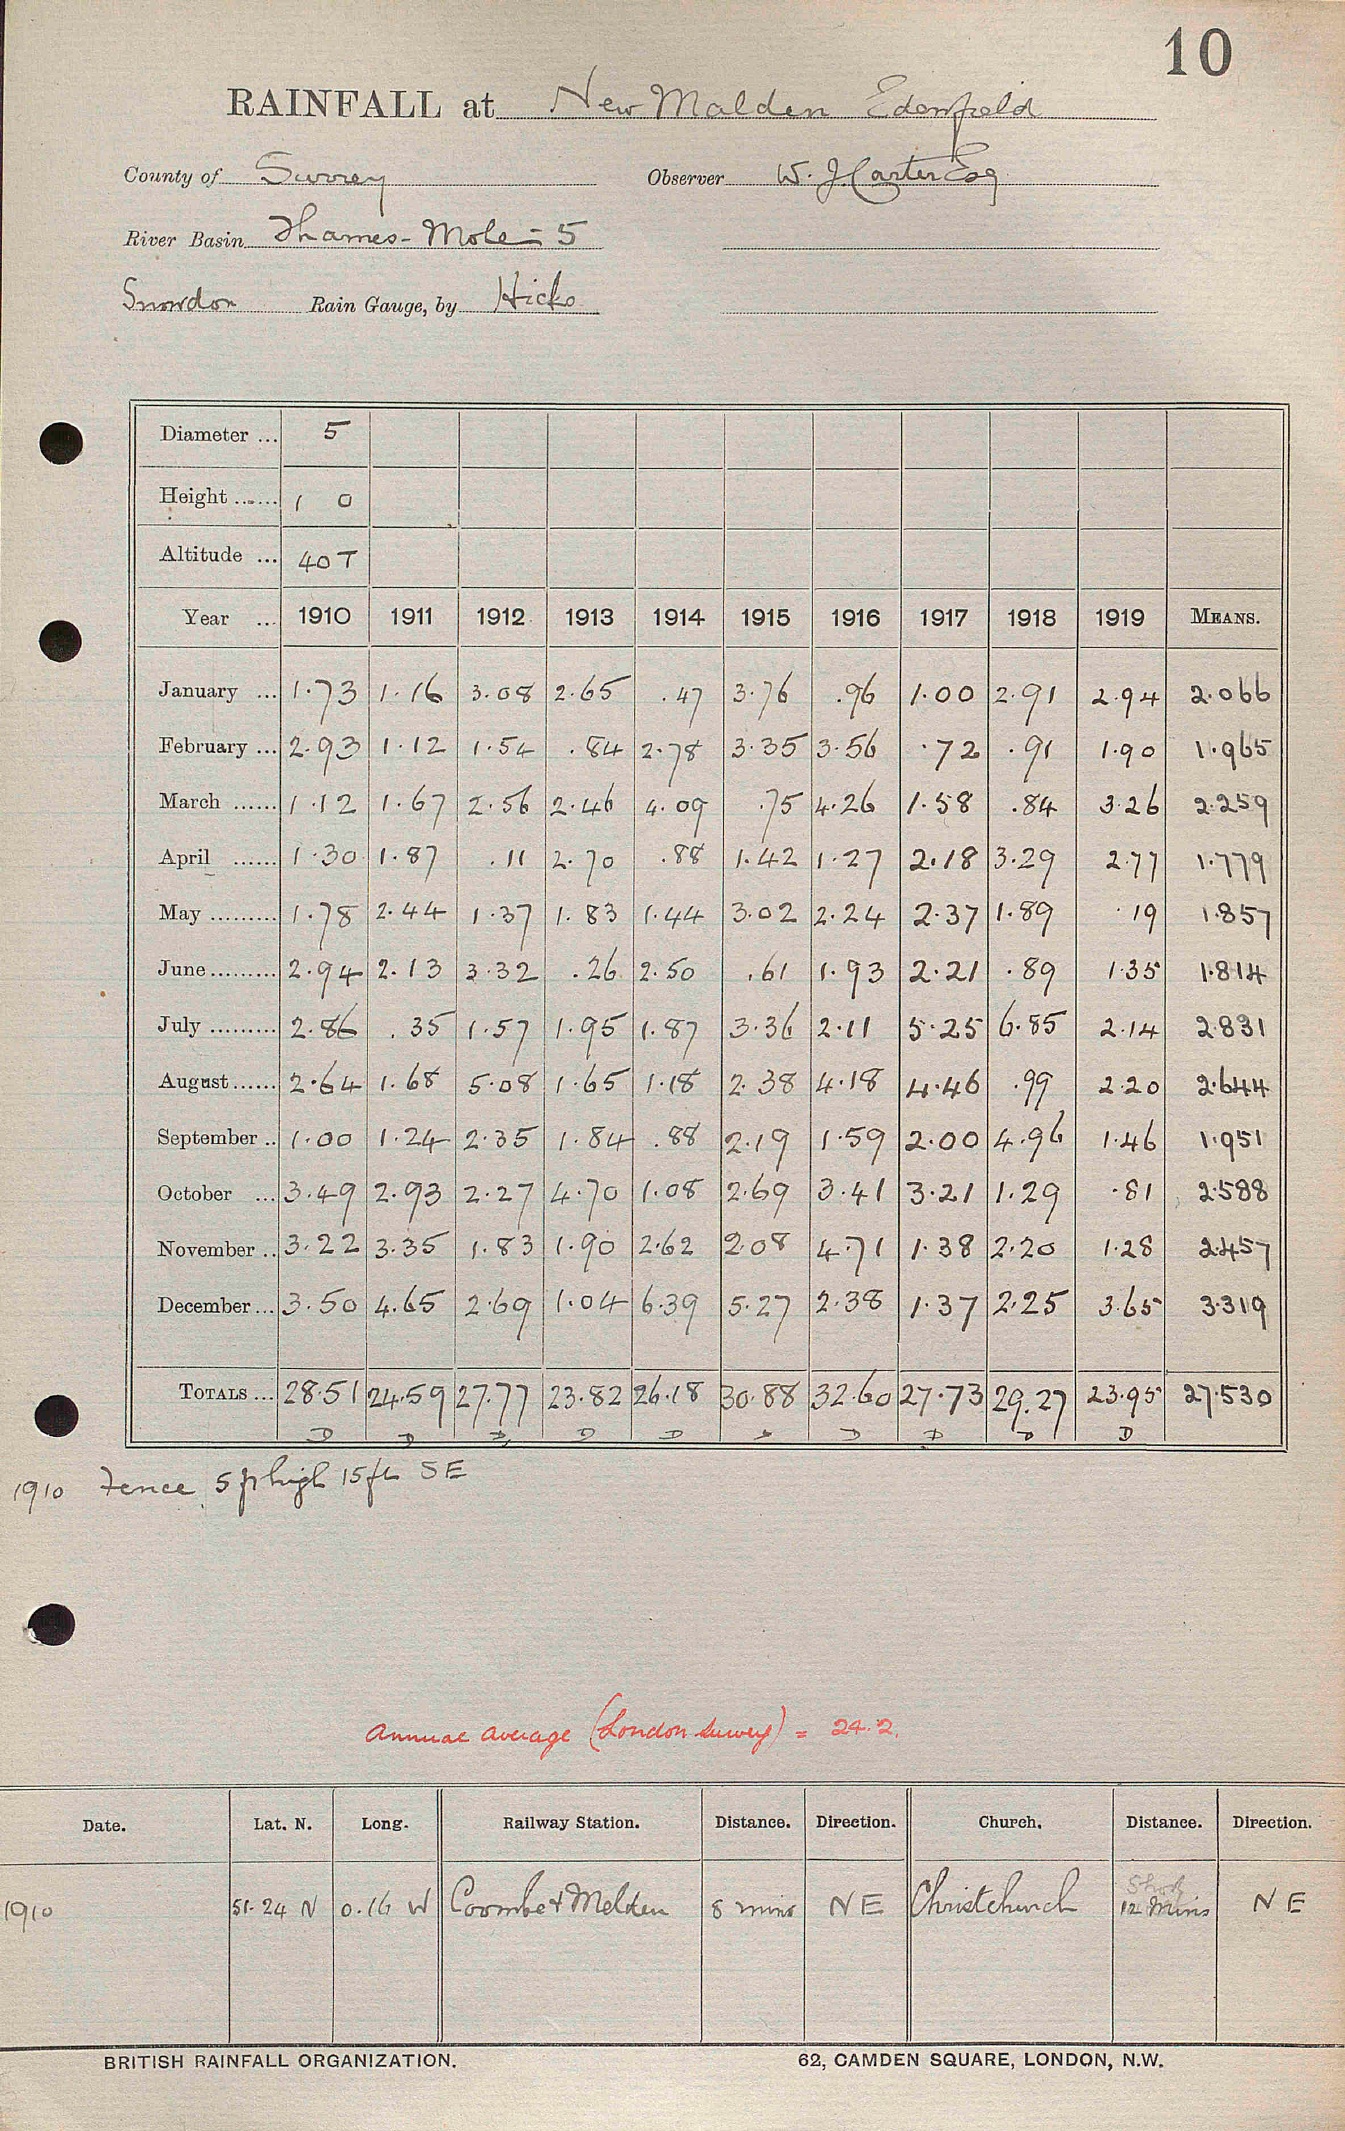 10
RAINFALL at New Malden Edenfield
County of Surrey Observer W. J. Carter Esq
River Basin Thames - Mole - 5
Snowdon Rain Gauge, by Hicks
Diameter ... 5
Height ...... 1 0
Altitude ... 40 T
Year ... 1910 1911 1912 1913 1914 1915 1916 1917 1918 1919 MEANS.
January ... 1.73 1.16 3.08 2.65 .47 3.76 .96 1.00 2.91 2.94 2.066
February ... 2.93 1.12 1.54 .84 2.78 3.35 3.56 .72 .91 1.90 1.965
March ...... 1.12 1.67 2.56 2.46 4.09 .75 4.26 1.58 .84 3.26 2.259
April ...... 1.30 1.87 .11 2.70 .88 1.42 1.27 2.18 3.29 2.77 1.779
May ......... 1.78 2.44 1.37 1.83 1.44 3.02 2.24 2.37 1.89 .19 1.857
June ......... 2.94 2.13 3.32 .26 2.50 .61 1.93 2.21 .89 1.35 1.814
July ......... 2.86 .35 1.57 1.95 1.87 3.36 2.11 5.25 6.85 2.14 2.831
August ...... 2.64 1.68 5.08 1.65 1.18 2.38 4.18 4.46 .99 2.20 2.644
September .. 1.00 1.24 2.35 1.84 .88 2.19 1.59 2.00 4.96 1.46 1.951
October ... 3.49 2.93 2.27 4.70 1.08 2.69 3.41 3.21 1.29 .81 2.588
November .. 3.22 3.35 1.83 1.90 2.62 2.08 4.71 1.38 2.20 1.28 2.457
December ... 3.50 4.65 2.69 1.04 6.39 5.27 2.38 1.37 2.25 3.65 3.319
TOTALS ... 28.51 24.59 27.77 23.82 26.18 30.88 32.60 27.73 29.27 23.95 27.530
D D D D D D D D D D
1910 Fence 5 ft high 15 ft SE
Annual average (London Survey) = 24.2.
Date. Lat. N. Long. Railway Station. Distance. Direction. Church. Distance. Direction.
1910 51.24 N 0.16 W Coombe & Malden 8 mins NE Christchurch 12 Mins NE
BRITISH RAINFALL ORGANIZATION. 62, CAMDEN SQUARE, LONDON, N.W.